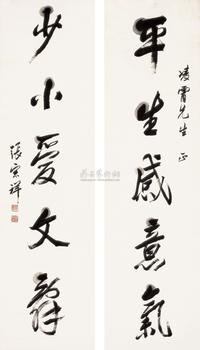 平生感意氣
凌霄先生 正
少小愛文辭
張宗祥